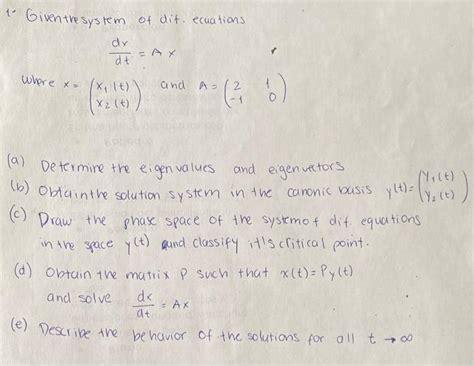 1.- Given the system of dif. ecuations
dx/dt = A x
where x = (x₁(t) x₂(t)) and A = (2 1 -1 0)
(a) Determine the eigenvalues and eigenvectors
(b) Obtain the solution system in the canonic basis y(t) = (y₁(t) y₂(t))
(c) Draw the phase space of the system of dif. equations
in the space y(t) and classify it's critical point.
(d) Obtain the matrix P such that x(t) = Py(t)
and solve dx/dt = Ax
(e) Describe the behavior of the solutions for all t → ∞